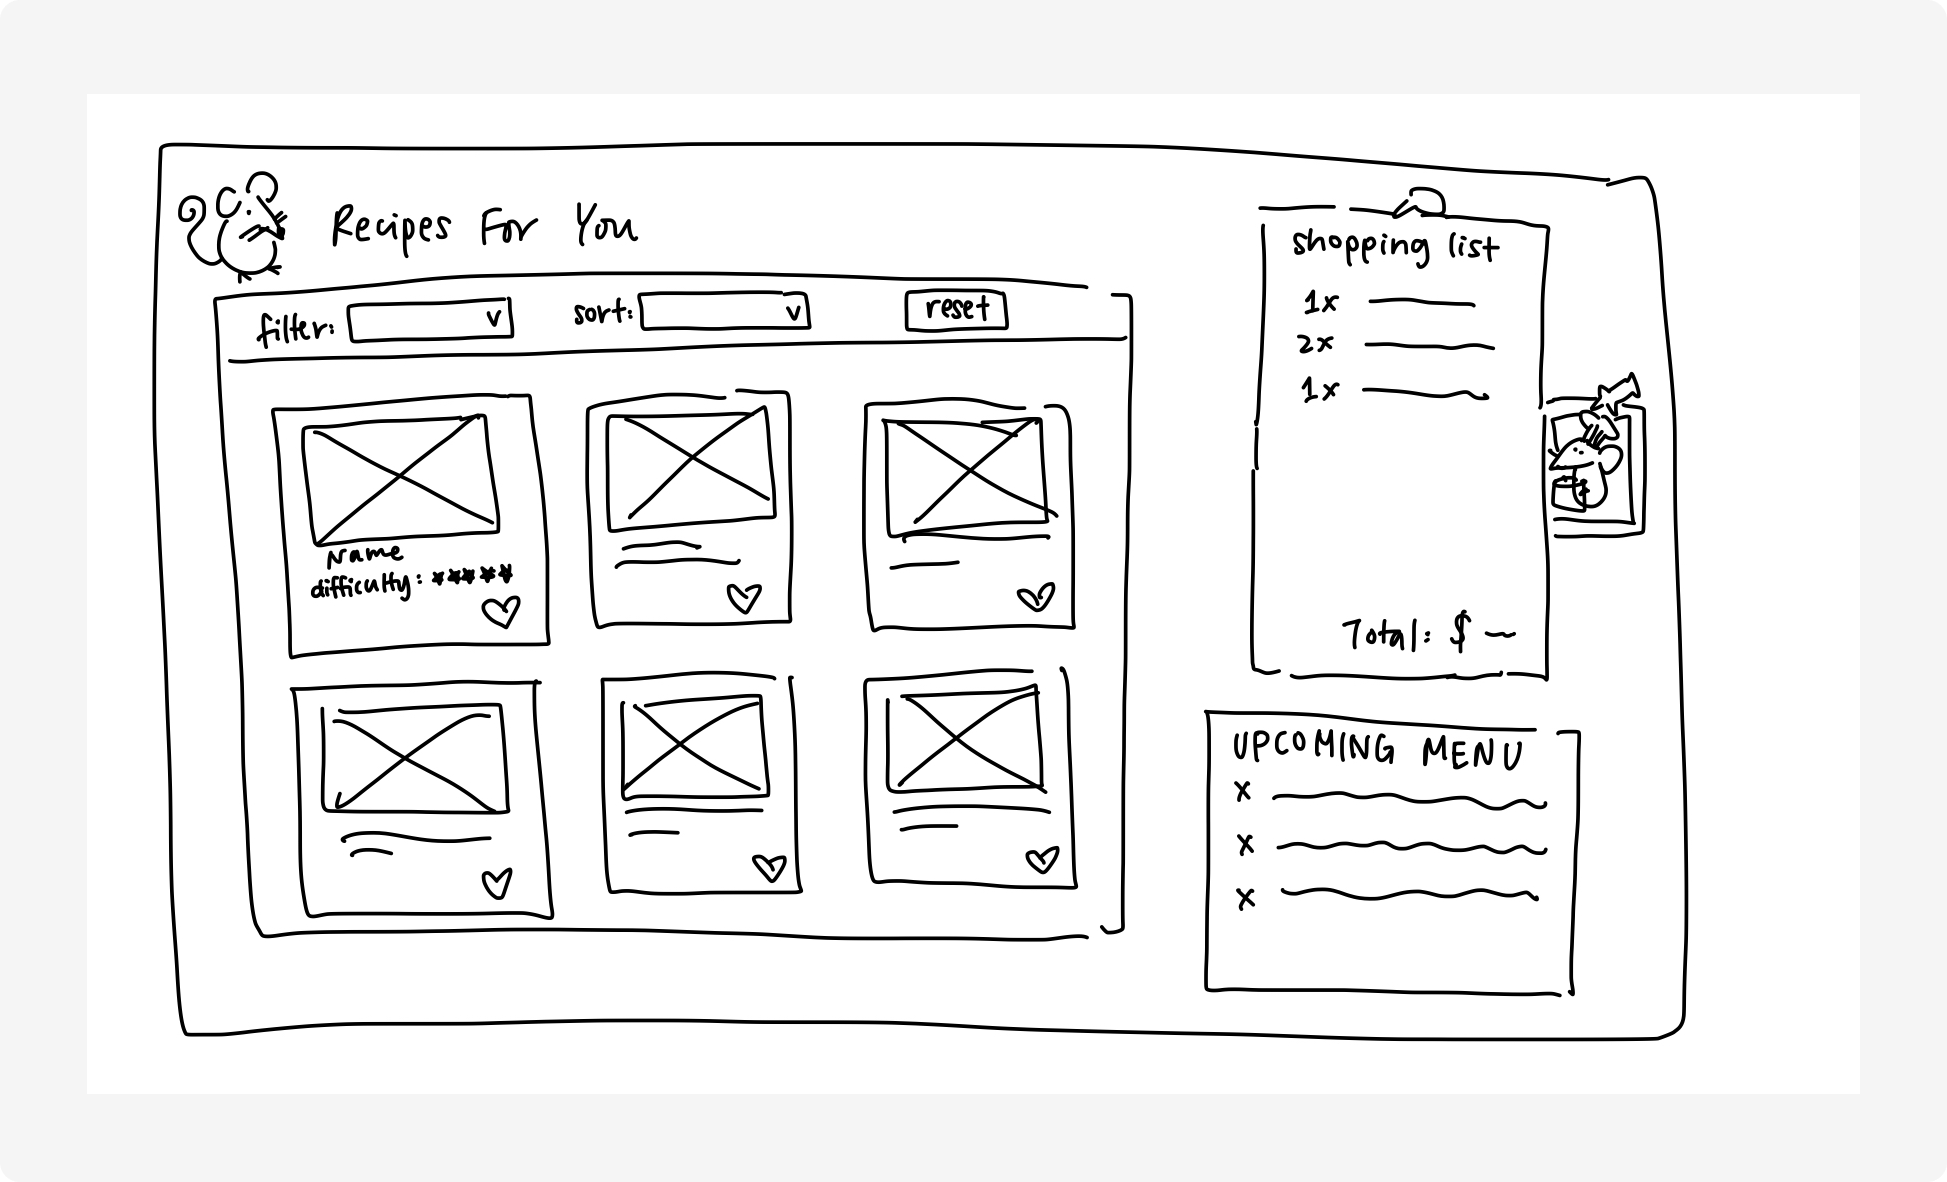 Recipes For You
filter: v
sort: v
reset
Name
difficulty: *****
shopping list
1x
2x
1x
Total: $
UPCOMING MENU
x
x
x